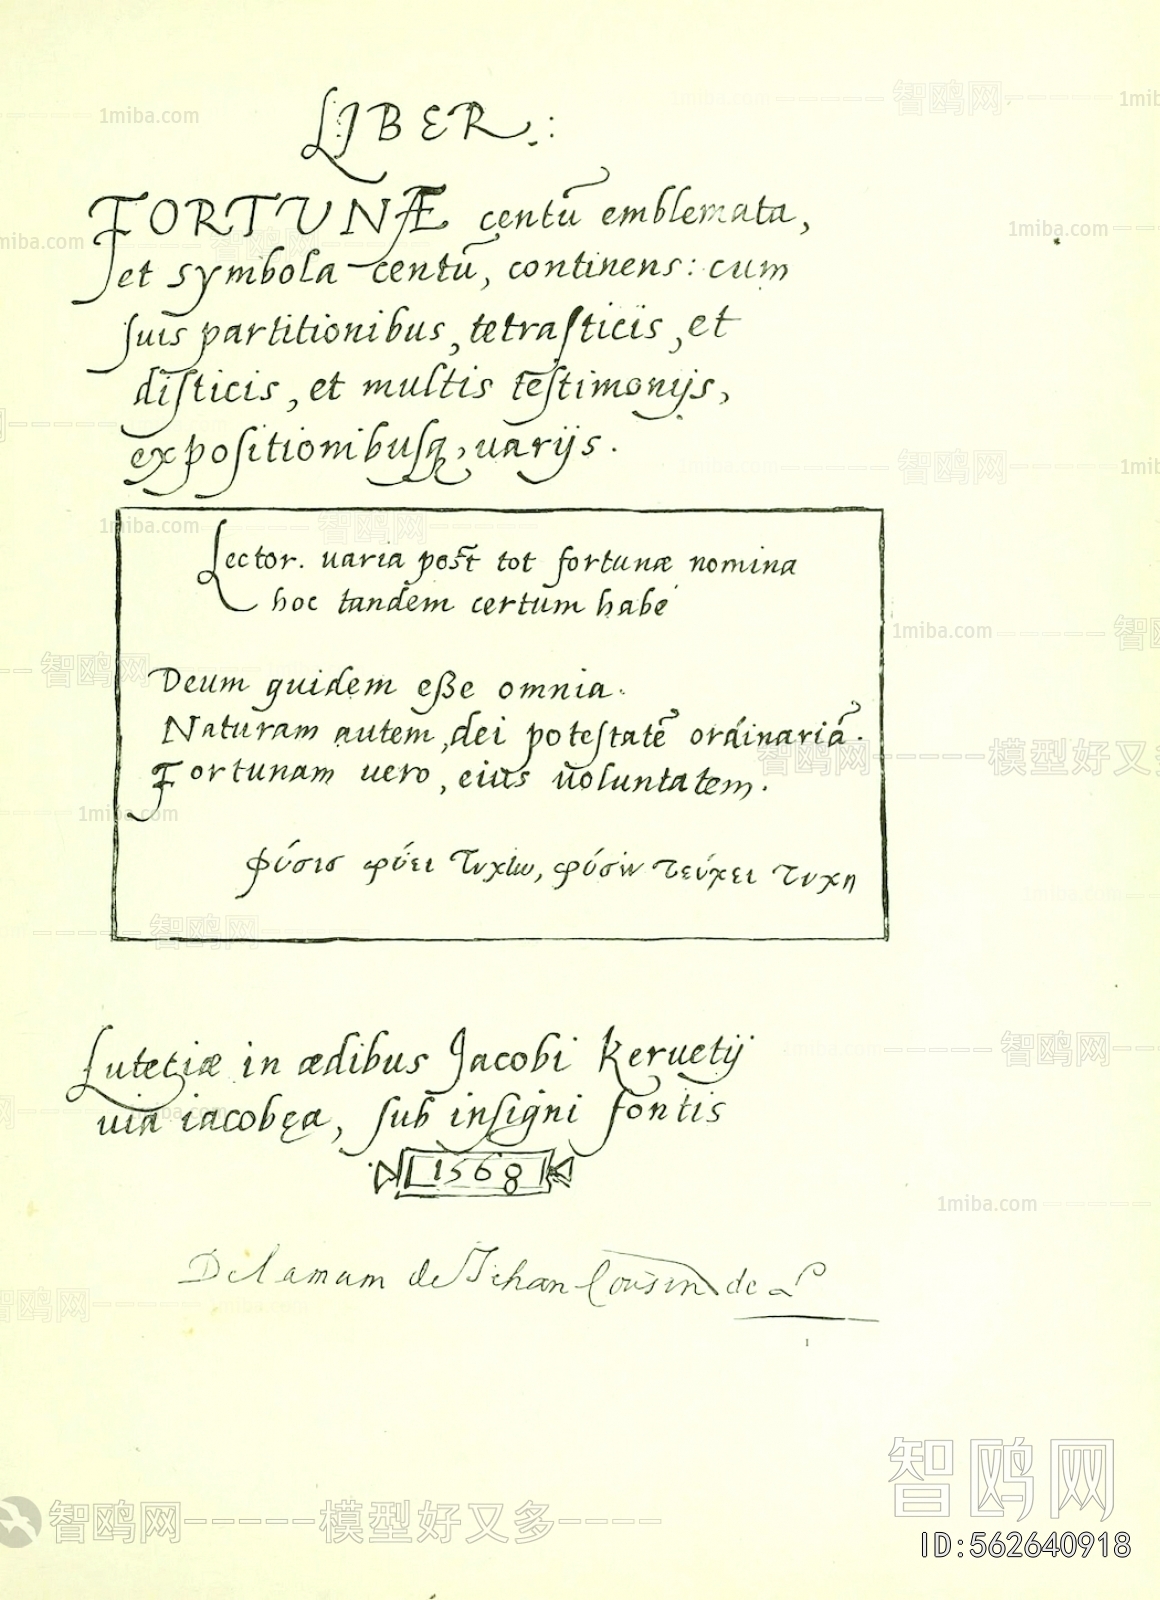 LIBER.:
FORTUNÆ centū emblemata,
et symbola centū, continens: cum
suis partitionibus, tetrasticis, et
disticis, et multis testimonijs,
expositionibusq, uarijs.
Lector. uaria post tot fortunæ nomina
hoc tandem certum habe
Deum quidem eße omnia.
Naturam autem, dei potestatē ordinariā.
Fortunam uero, eius uoluntatem.
φύσις φύει τυχὼ, φύσιν τεύχει τυχη
Lutetiæ in ædibus Jacobi Keruetij
uia iacobęa, sub insigni fontis
1568
De la mam de Jehan Cousin de L
1
1miba.com
智鸥网
模型好又多
智鸥网
ID:562640918